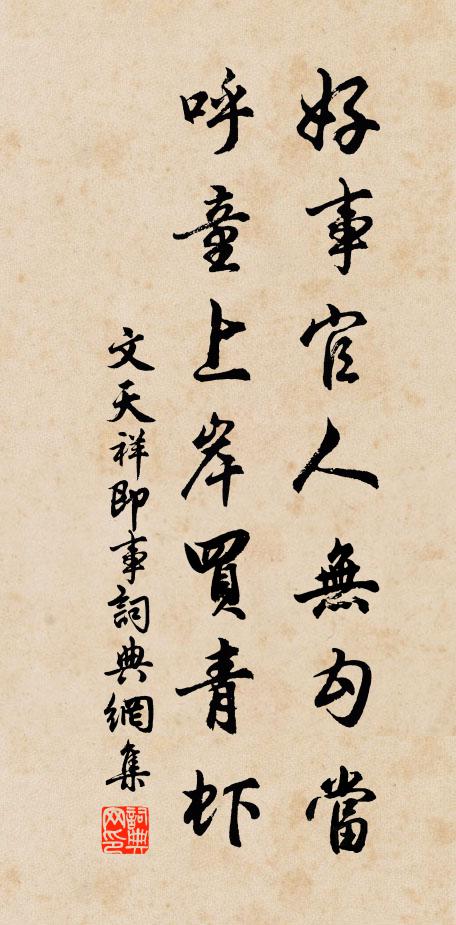 好事官人無勾當
呼童上岸買青虾
文天祥即事詞典網集
詞典网印